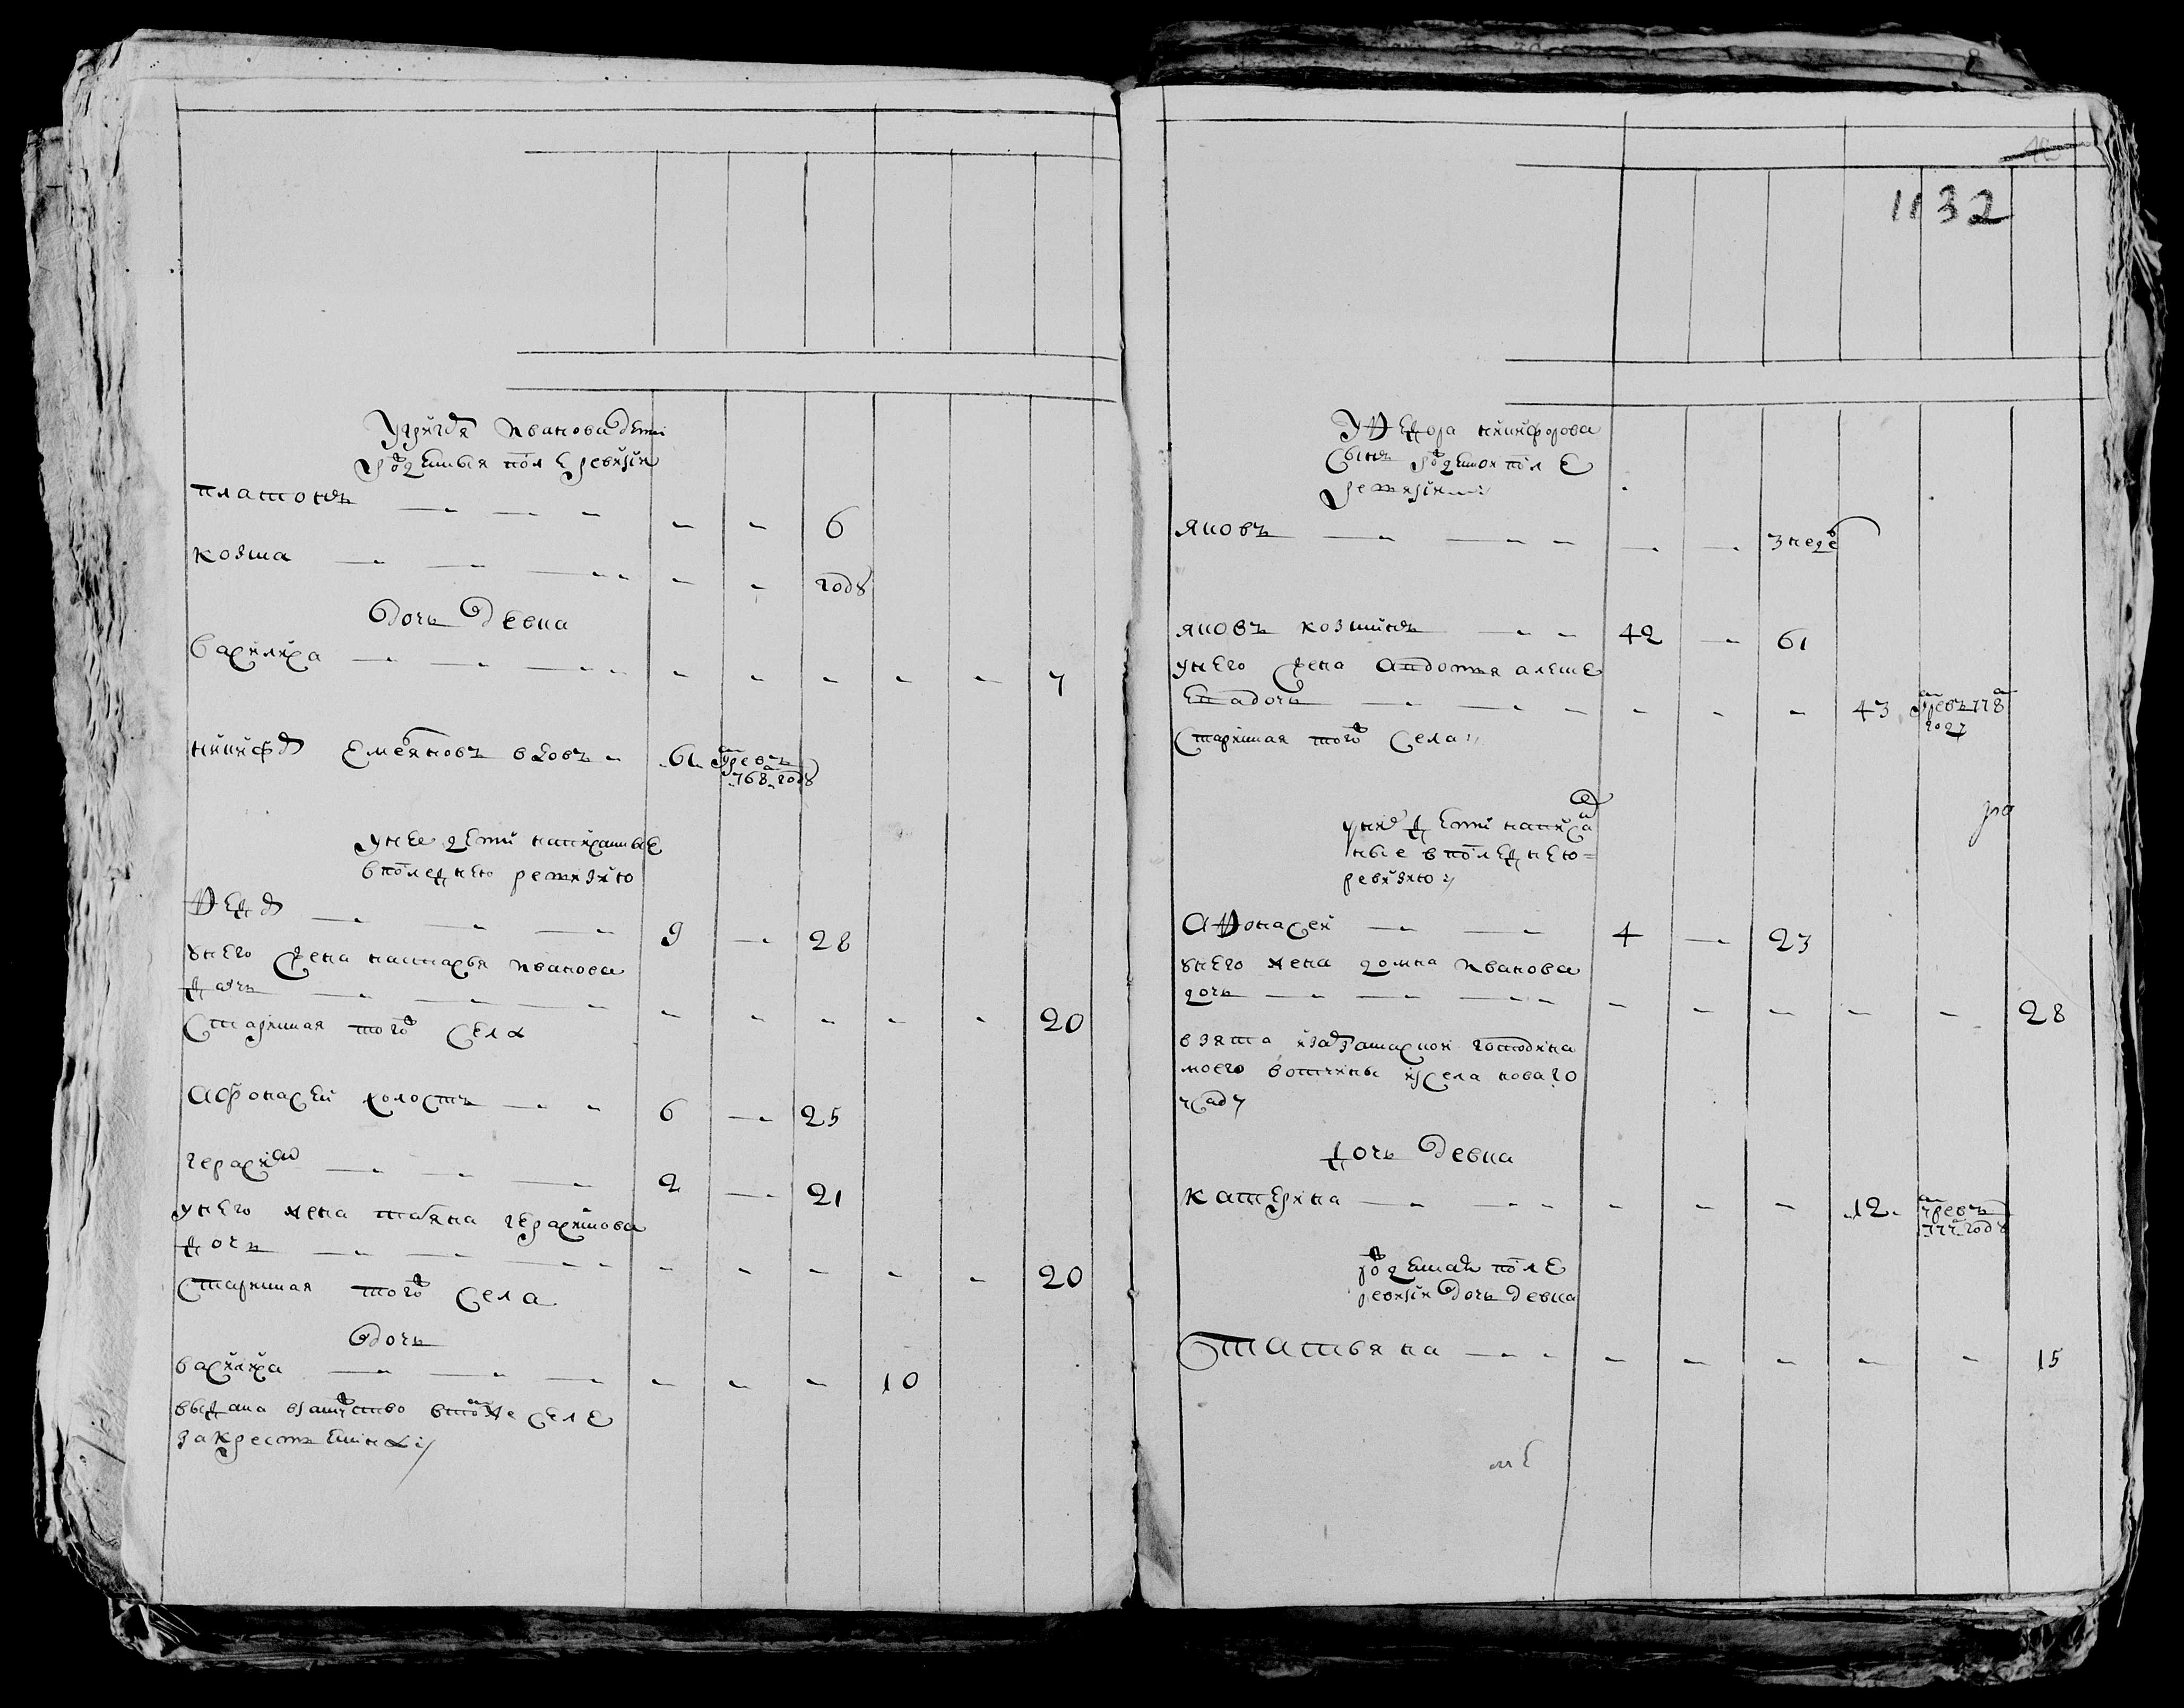 У григоря иванова дети
рожденныя после ревизии
платонъ — — — — — 6
козма — — — — — году
дочь девка
василиса — — — — — — — — 7
никифоръ емельяновъ вдовъ — 61 умре въ
768 году
у нее дети написанные
в последнею ревизию
Федоръ — — — 9 — 28
у него жена настасья иванова
дочь — — — — — — — — 20
старинная того села
афонасей холостъ — — 6 — 25
герасимъ — — — 2 — 21
у него жена татьяна герасимова
дочь — — — — — — — — 20
старинная того села
дочь
василиса — — — — — — 10
выдана в замужство в томже селе
за крестьянина
1132
У Федора никифорова
сынъ рожденной после
ревизии
яковъ — — — — — 3 неде
яковъ козминъ — — 42 — 61
у него жена авдотья алексе
ева дочь — — — — — — 43 умре въ 778
году
старинная того села
у них дети написа
ные в последнею
ревизию
Афонасей — — 4 — 23
у него жена домна иванова
дочь — — — — — — — — 28
взята из
моего вотчины из села новаго
усаду
дочь девка
катерина — — — — — — 12 умре въ
году
рожденная после
ревизии дочь девка
Статьяна — — — — — — — 15